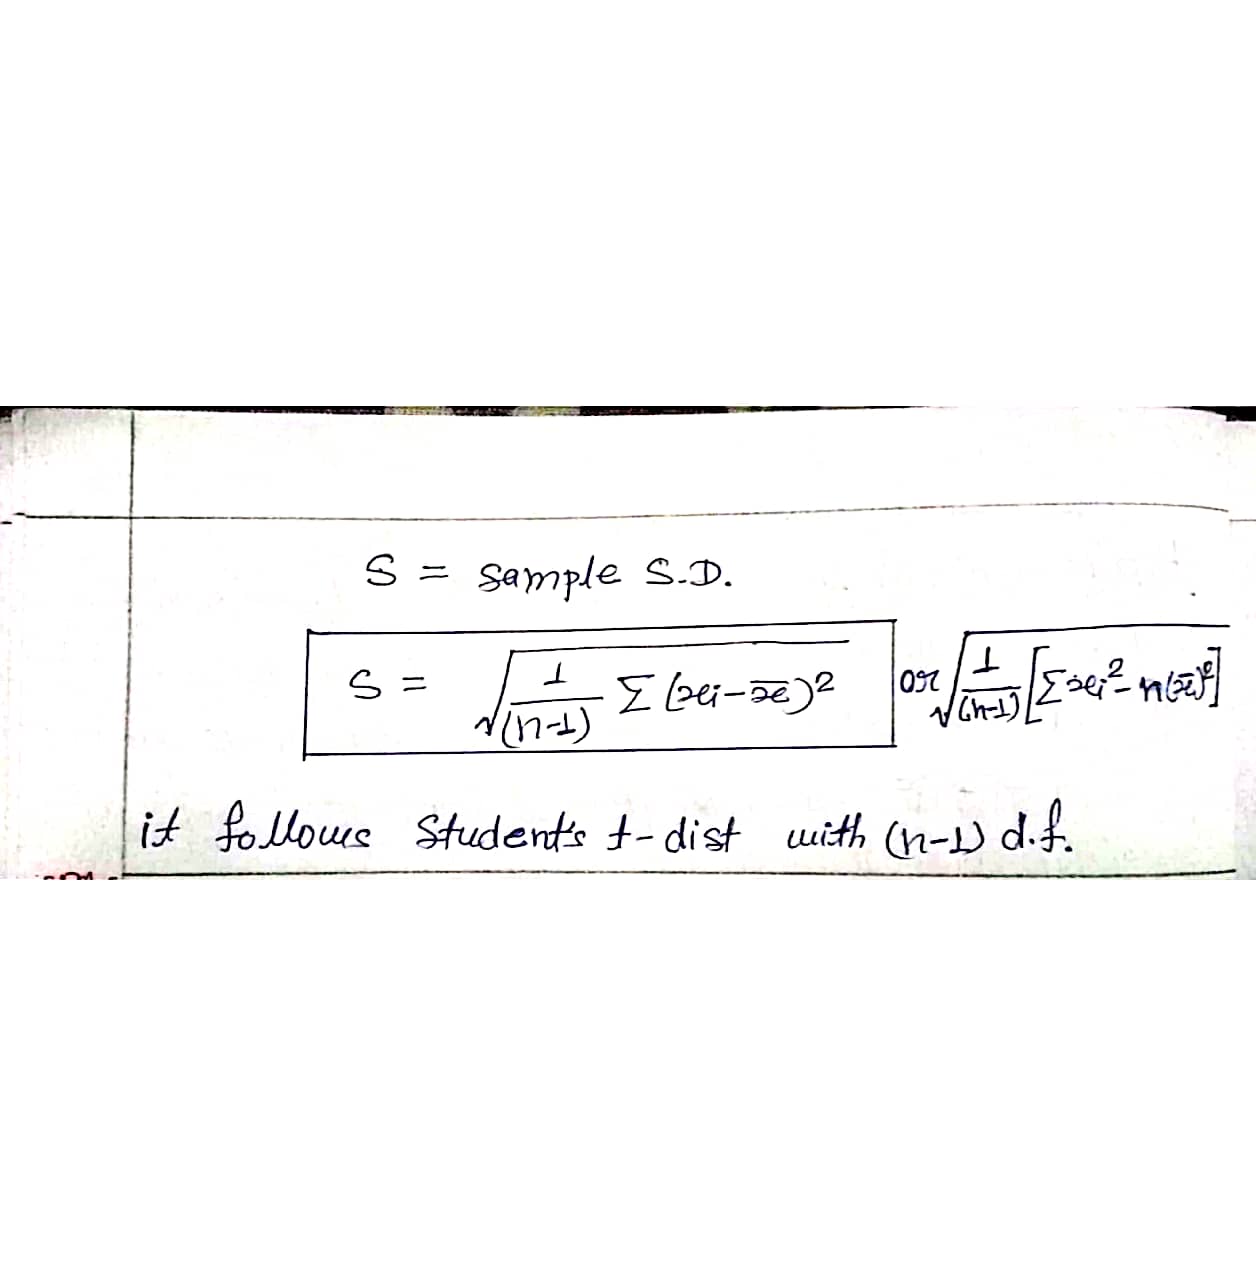 S = sample S.D.
S = √(1/(n-1) Σ(xi-x̄)²) or √(1/(n-1) [Σxi² - n(x̄)²])
it follows Student's t-dist with (n-1) d.f.